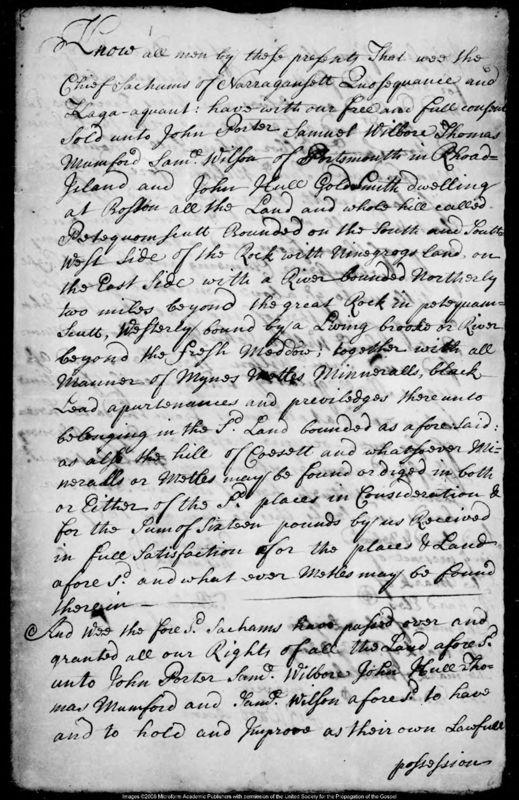 Know all men by these presents That wee the
Chief Sachams of Narragansett Quosequance and
Kaga-aquant: have with our free and full consent
Sold unto John Porter Samuel Wilbore Thomas
Mumford Sam.d Wilson of Portsmouth in Rhoad-
Island and John Hull Goldsmith dwelling
at Boston all the Land and whole hill called
Petequomscutt Bounded on the South and South
West Side of the Rock with Nenegrogs Land, on
the East Side with a River bounded Northerly
two miles beyond the great Rock in petequam=
Scutt, Westerly bound by a Living brooke or River
beyond the fresh Meddow; together with all
Manner of Mynes Metles Minneralls, black
Lead apurtenances and previledges there unto
belonging in the S.d Land bounded as afore said:
as also the hill of Coesett and whatsoever Mi-
neralls or Metles may be found or diged in both
or Either of the S.d places in Consideration &
for the Sum of Sixteen pounds by us Received
in full Satisfaction for the places & Land
afore S.d and what ever Metles may be found
therein
And Wee the fore S.d Sachams have pass'd over and
granted all our Rights of all the Land afore S.d
unto John Porter Sam.d Wilbore John Hull Tho-
mas Mumford and Sam.d Wilson afore S.d to have
and to hold and Improve as their own Lawfull
possession
Images ©2008 Microform Academic Publishers with permission of the United Society for the Propagation of the Gospel